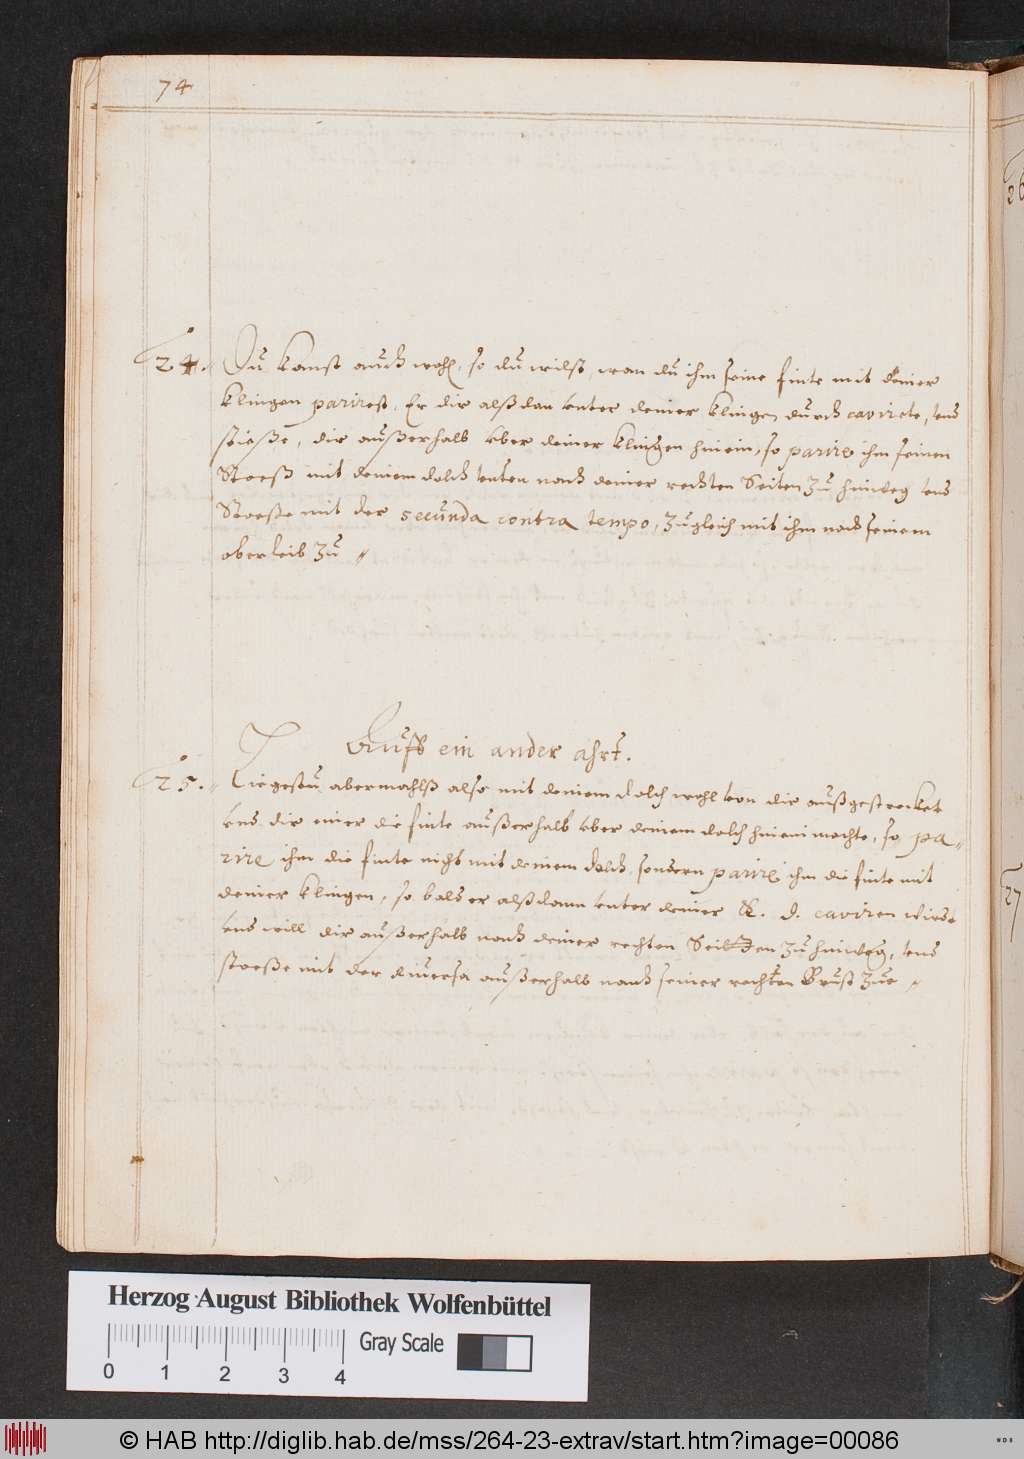 74
24. Du kanst auch wohl, so du wilst, wan du ihm seine finte mit deiner
klingen parirest, Er dir alßdan unter deiner klingen durch cavirete, und
stieße, dir außerhalb uber deiner klingen hinein, so parire ihm seinen
Stoeß mit deinem dolch unten nach deiner rechten Seiten zu hinweg und
Stoeße mit der secunda contra tempo, zugleich mit ihm nach seinem
oberleib zu
Auff ein ander ahrt.
25. Liegestu abermahlß also mit deinem dolch wohl von dir außgestrecket
und dir einer die finte außerhalb uber deinem dolch hinein machte, so pa-
rire ihm die finte nicht mit deinem dolch, sondern parire ihm die finte mit
deiner klingen, so bald er alßdann unter deiner K. d. caviren wirdt
und will dir außerhalb nach deiner rechten Seitten zu hinweg, und
stoeße mit der außerhalb nach seiner rechten Brust zue
26
27
Herzog August Bibliothek Wolfenbüttel
Gray Scale
0 1 2 3 4
© HAB http://diglib.hab.de/mss/264-23-extrav/start.htm?image=00086